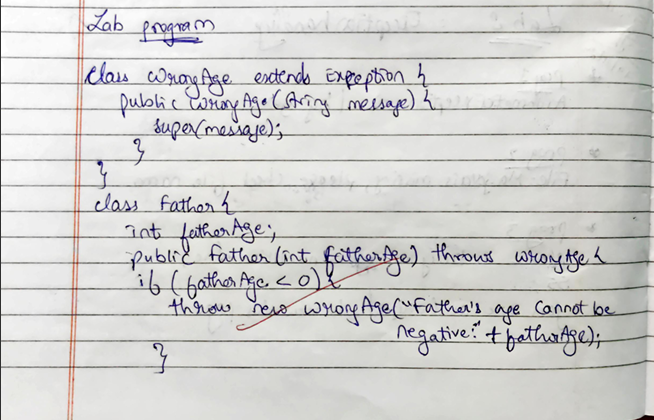 Lab program
class WrongAge extends Exception {
public WrongAge(String message) {
super(message);
}
}
class Father {
int fatherAge;
public Father (int fatherAge) throws WrongAge {
if (fatherAge < 0) {
throw new WrongAge("Father's age cannot be
negative:" + fatherAge);
}